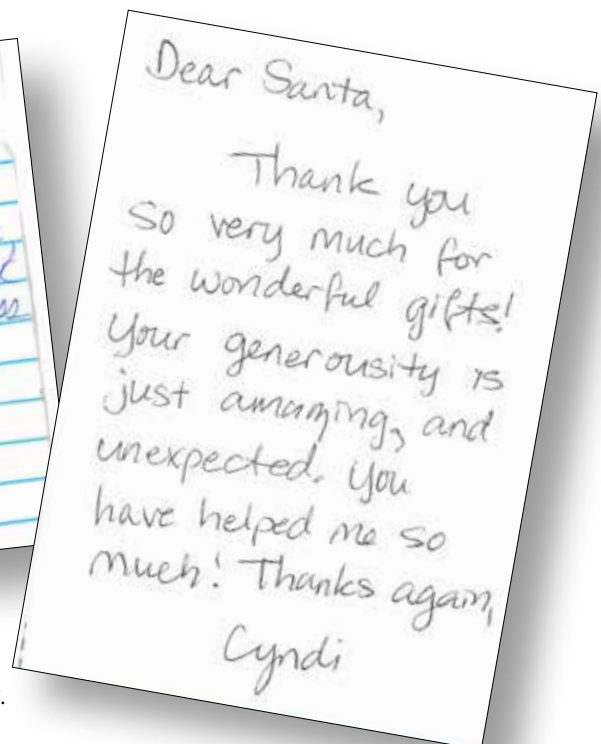 Dear Santa,
Thank you
so very much for
the wonderful gifts!
Your generousity is
just amazing, and
unexpected. You
have helped me so
much! Thanks again,
Cyndi